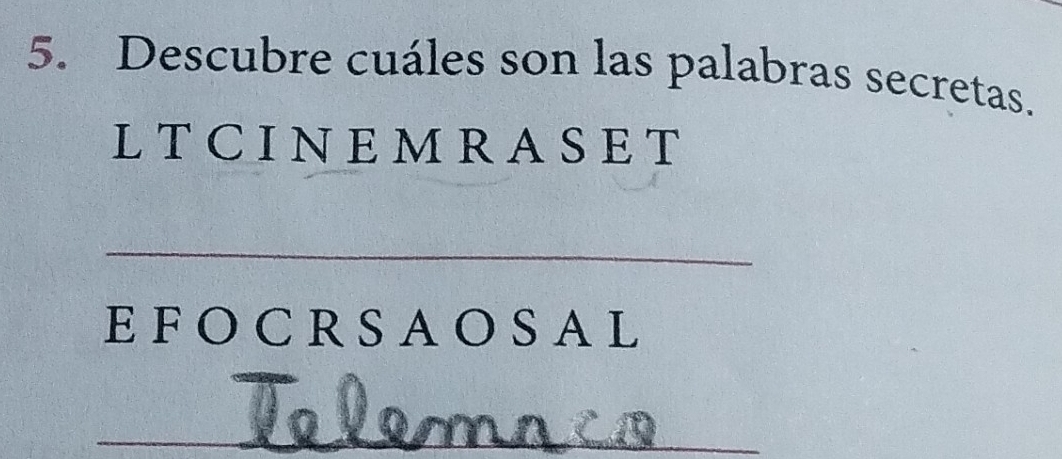 5. Descubre cuáles son las palabras secretas.
L T C I N E M R A S E T
E F O C R S A O S A L
Telemaco